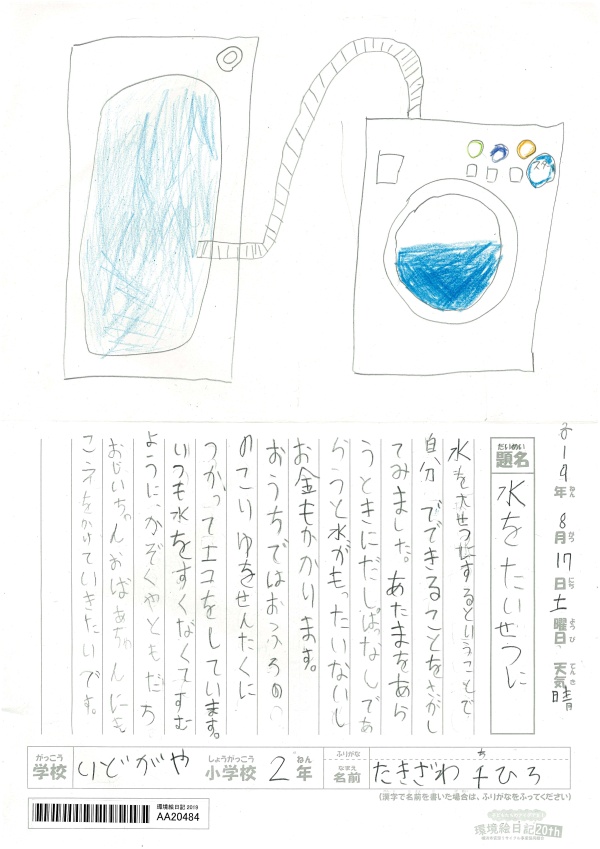 スタート
2019年8月17日土曜日 天気晴
だいめい
題名
水をたいせつに
水を大せつにするということで
自分でできることをさがし
てみました。あたまをあら
うときにだしぱなしであ
らうと水がもったいないし
お金もかかります。
おうちではおふろの
のこりゆをせんたくに
つかってエコをしています。
いつも水をすくなくてすむ
ように、かぞくやともだち
おじいちゃんおばあちゃんにも
こえをかけていきたいです。
がっこう
学校
いどがや
しょうがっこう
小学校
2年
ねん
ふりがな
なまえ
名前
ち
たきざわ千ひろ
(漢字で名前を書いた場合は、ふりがなをふってください)
環境絵日記 2019
AA20484
環境絵日記20th